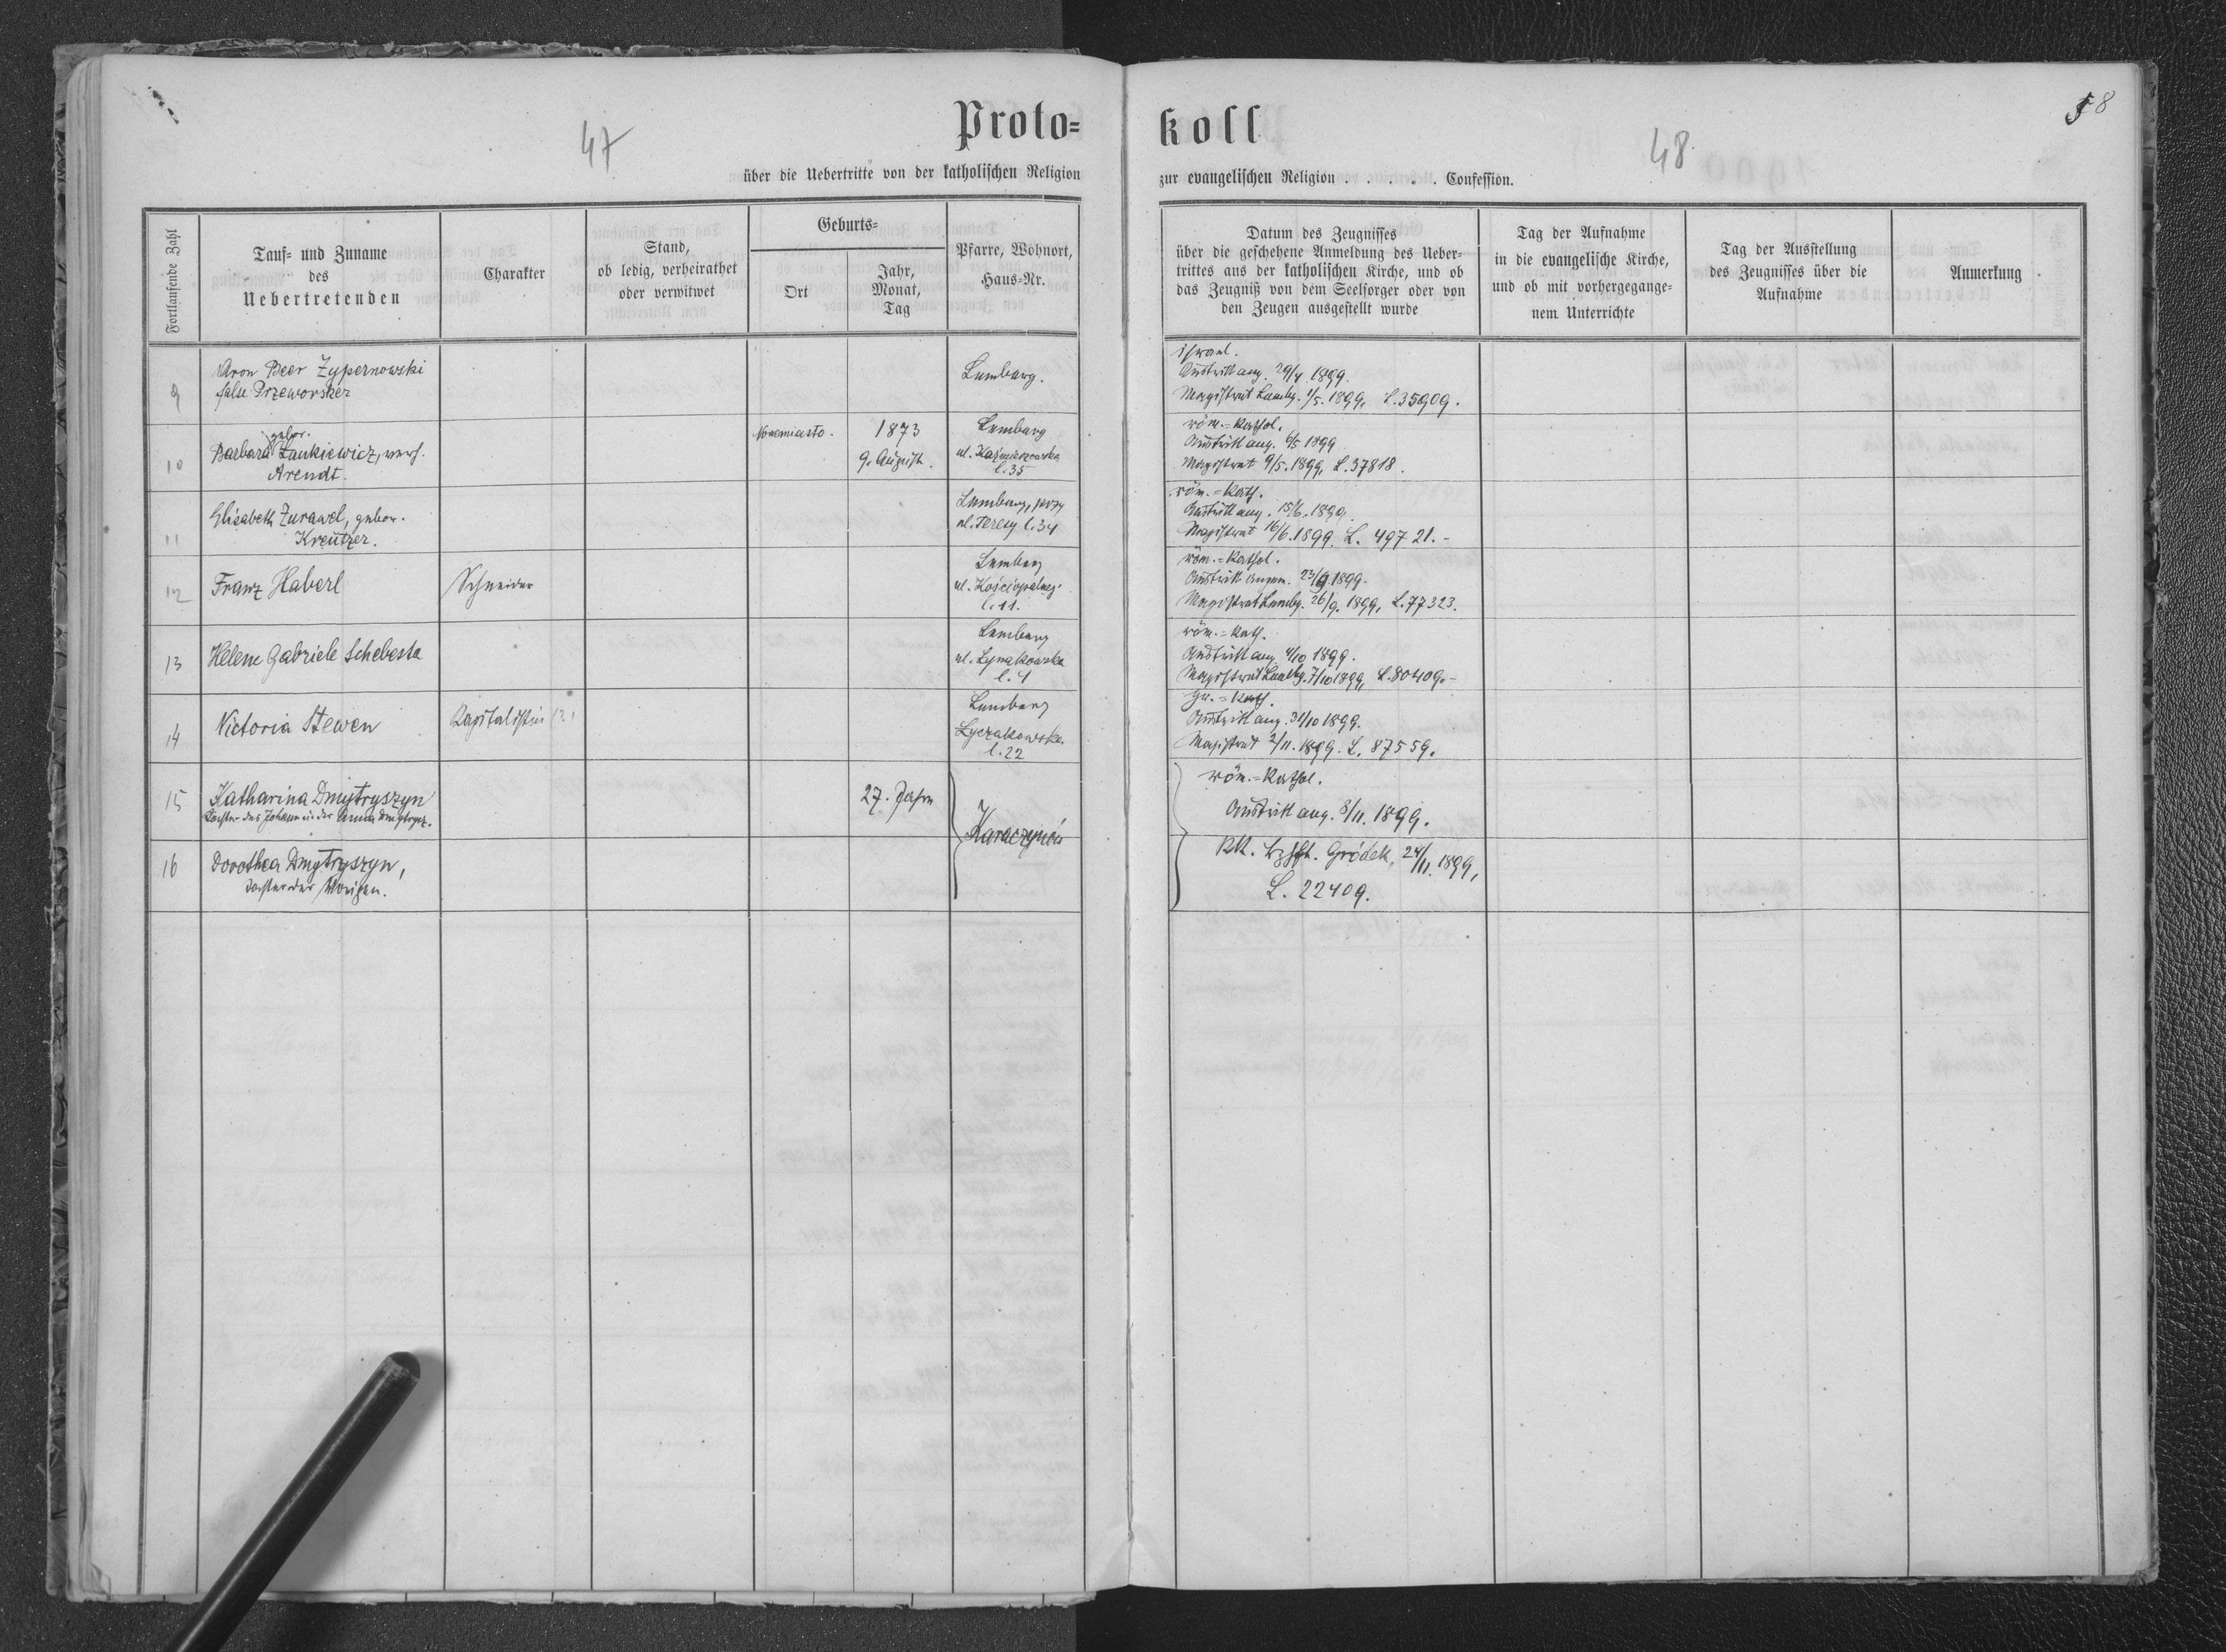 47
Proto=
über die Uebertritte von der katholischen Religion
Fortlaufende Zahl
Tauf= und Zuname
des
Uebertretenden
Charakter
Stand,
ob ledig, verheirathet
oder verwitwet
Geburts=
Ort
Jahr,
Monat,
Tag
Pfarre, Wohnort,
Haus=Nr.
9
Aron Beer Zypernowski
false Przeworsker
Lemberg.
10
gebor.
Barbara Zankiewicz, verh.
Arendt.
Nowemiasto.
1873
9. August.
Lemberg
ul. Kazmierzowska
l. 35
11
Elisabeth Zurawel, gebor.
Kreutzer.
Lemberg, przy
ul. Teresy l. 34
12
Franz Haberl
Schneider
Lemberg
ul. Kościopalnej
l. 11.
13
Helene Gabriele Schebesta
Lemberg
ul. Łyczakowska
l. 4
14
Victoria Stewen
Kapitalistin (?)
Lemberg
Łyczakowska
l. 22
15
Katharina Dmytryszyn
Tochter des Johann u. der Anna Dmytrysz.
27. Jahre
Karaczynów
16
Dorothea Dmytryszyn,
Tochter der Vorigen.
koll
48
58
zur evangelischen Religion . . . . . . Confession.
Datum des Zeugnisses
über die geschehene Anmeldung des Ueber-
trittes aus der katholischen Kirche, und ob
das Zeugniß von dem Seelsorger oder von
den Zeugen ausgestellt wurde
Tag der Aufnahme
in die evangelische Kirche,
und ob mit vorhergegange=
nem Unterrichte
Tag der Ausstellung
des Zeugnisses über die
Aufnahme
Anmerkung
israel.
Austritt ang. 29/4 1899.
Magistrat Lemby. 1/5. 1899, L. 35909.
röm.=kathol.
Austritt ang. 6/5 1899
Magistrat 9/5. 1899, L. 37818.
röm.=kath.
Austritt ang. 15/6. 1899.
Magistrat 16/6. 1899. L. 49721.-
röm.=kathol.
Austritt angem. 23/9 1899.
Magistrat Lemby. 26/9. 1899, L. 77323.
röm.=kath.
Austritt ang. 4/10 1899.
Magistrat Lemby. 7/10 1899, L. 80409.-
gr.=kath.
Austritt ang. 31/10 1899.
Magistrat 2/11. 1899. L. 87559.
röm.=kathol.
Austritt ang. 8/11. 1899.
KK. Bzhft. Gródek, 24/11. 1899,
L. 22409.